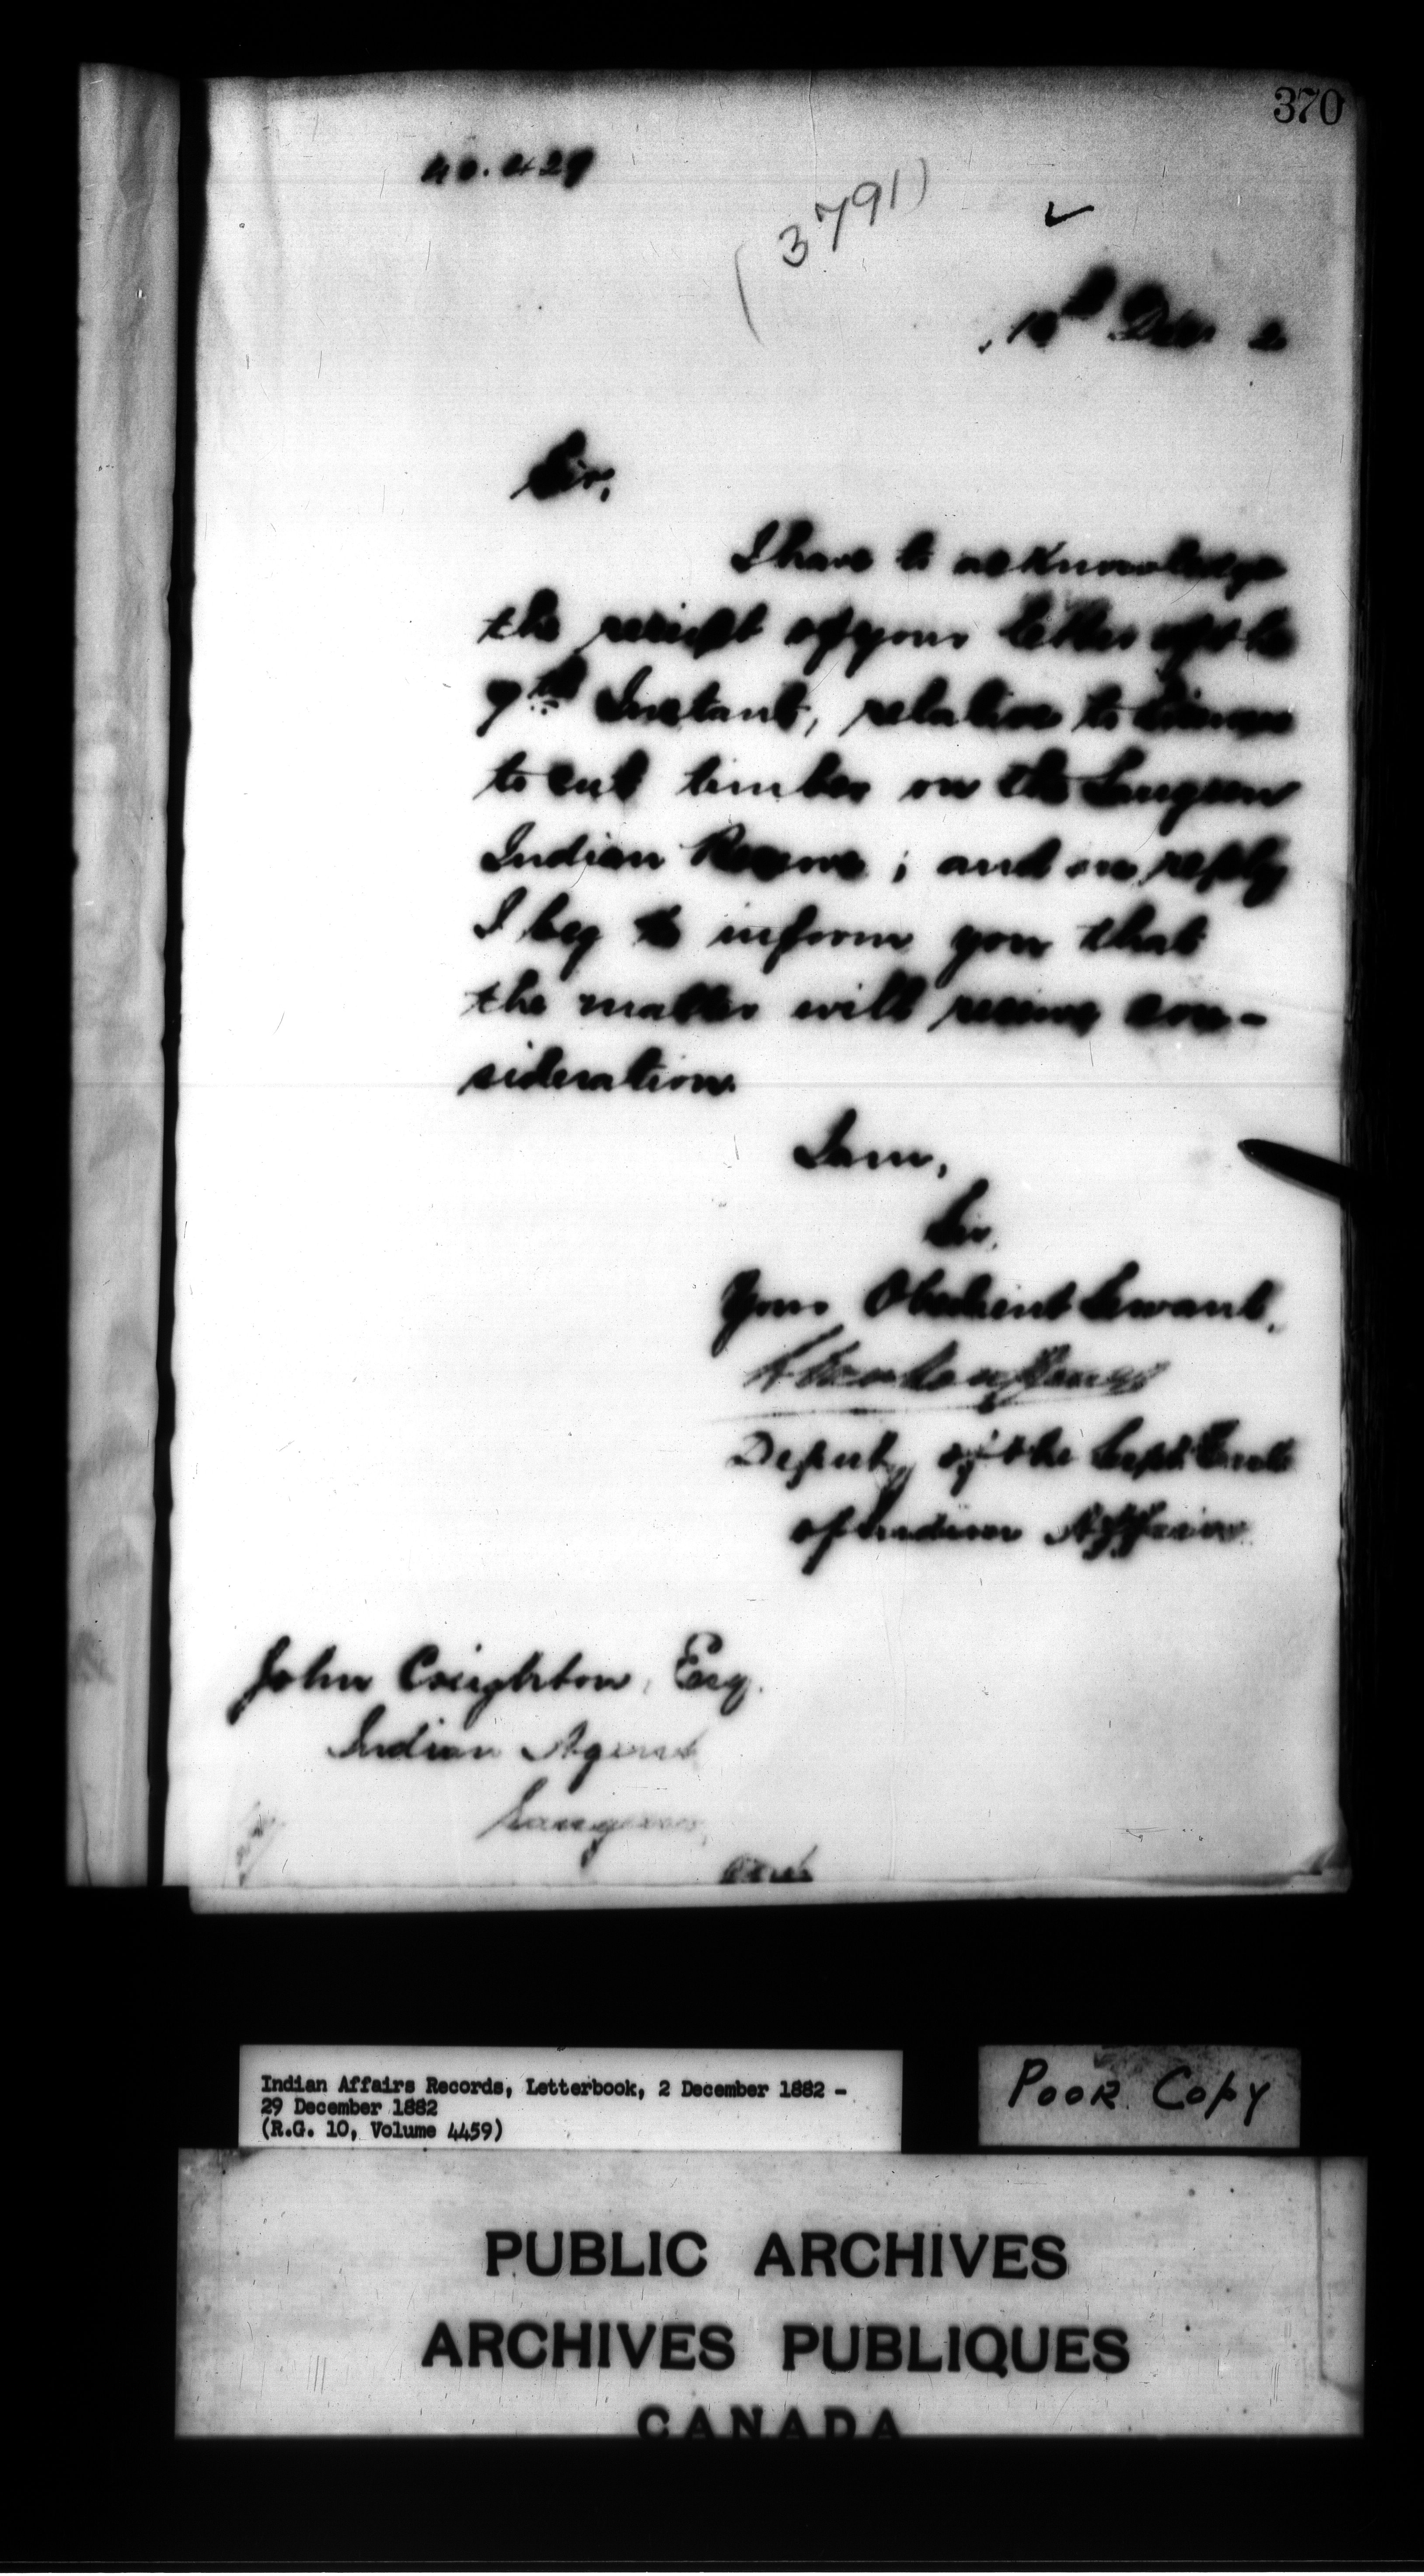 370
40.429
(3791)
Dec 2
Sir,
I have to acknowledge
the receipt of your letter of the
7th Instant, relative to license
to cut timber on the Saugeen
Indian Reserve; and in reply
I beg to inform you that
the matter will receive con-
sideration.
I am,
Sir,
Your Obedient Servant,
Deputy of the Supt. Genl.
of Indian Affairs
John Creighton, Esq.
Indian Agent
Saugeen,
Indian Affairs Records, Letterbook, 2 December 1882 -
29 December 1882
(R.G. 10, Volume 4459)
Poor Copy
PUBLIC ARCHIVES
ARCHIVES PUBLIQUES
CANADA